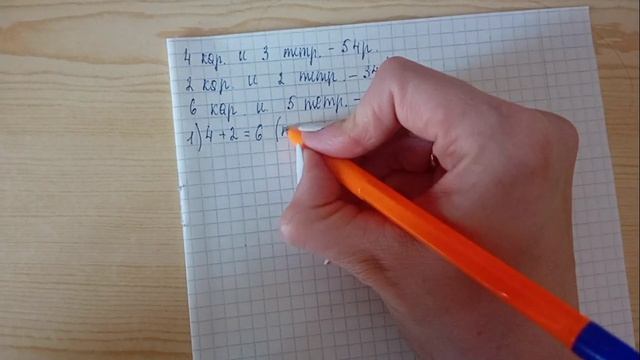 4 кар. и 3 тетр. - 54р.
2 кар. и 2 тетр. - 34
6 кар. и 5 тетр. -
1) 4 + 2 = 6 (